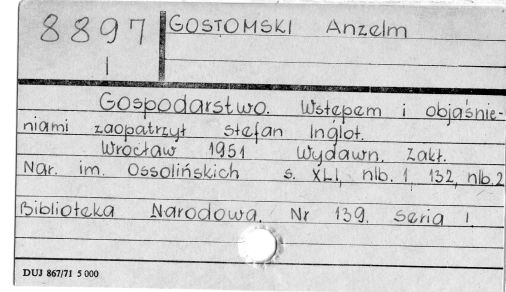 8897
I
GOSTOMSKI Anzelm
Gospodarstwo. Wstępem i objaśnie-
niami zaopatrzył Stefan Inglot.
Wrocław 1951 Wydawn. Zakł.
Nar. im. Ossolińskich s. XLI, nlb. 1, 132, nlb. 2
Biblioteka Narodowa. Nr 139. Seria I.
DUJ 867/71 5 000